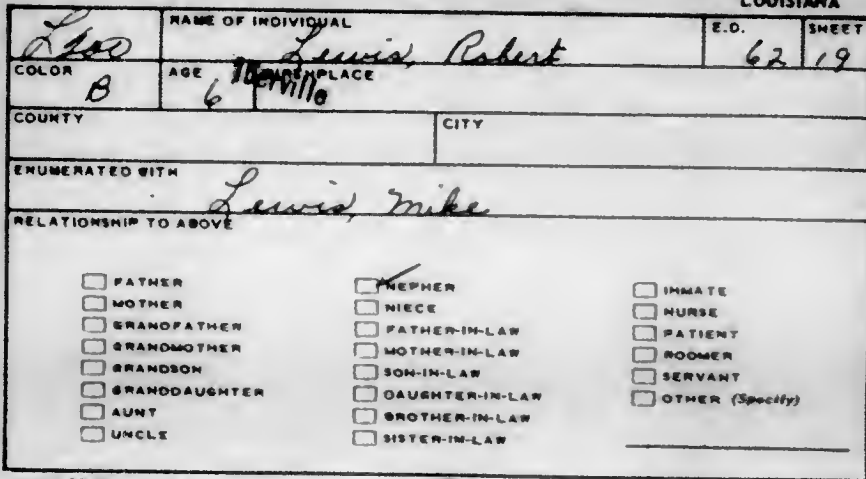 LOUISIANA
L200 NAME OF INDIVIDUAL Lewis, Robert E.D. 62 SHEET 19
COLOR B AGE 6 Iberville BIRTHPLACE
COUNTY CITY
ENUMERATED WITH Lewis, Mike
RELATIONSHIP TO ABOVE
FATHER
MOTHER
GRANDFATHER
GRANDMOTHER
GRANDSON
GRANDDAUGHTER
AUNT
UNCLE
NEPHER
NIECE
FATHER-IN-LAW
MOTHER-IN-LAW
SON-IN-LAW
DAUGHTER-IN-LAW
BROTHER-IN-LAW
SISTER-IN-LAW
INMATE
NURSE
PATIENT
ROOMER
SERVANT
OTHER (Specify)